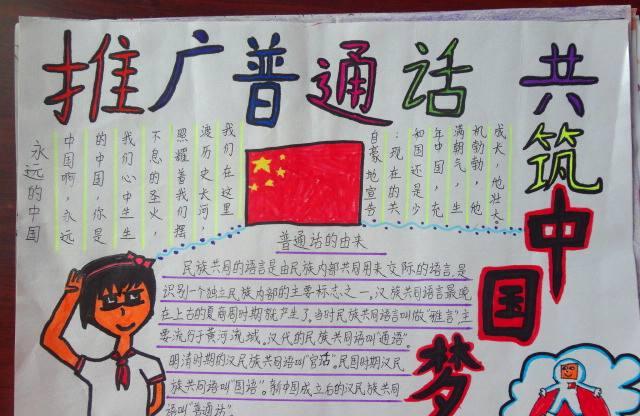 推广普通话
共筑中国梦
永远的中国
成长，他壮大
机勃勃，他
满朝气，生
年中国，充
如国还是少
：现在的共
自豪地宣告
我们在这里
渡历史长河，
照耀着我们摆
不息的圣火，
我们心中生生
的中国，你是
中国啊，永远
普通话的由来
民族共同的语言是由民族内部共同用来交际的语言，是
识别一个独立民族内部的主要标志之一。汉族共同语言最晚
在上古的夏商周时期就产生了，当时民族共同语言叫做“雅言”，主
要流行于黄河流域。汉代的民族共同语叫“通语”。
明清时期的汉民族共同语叫“官话”。民国时期汉民
族共同语叫“国语”。新中国成立后的汉民族共同
语叫“普通话”。